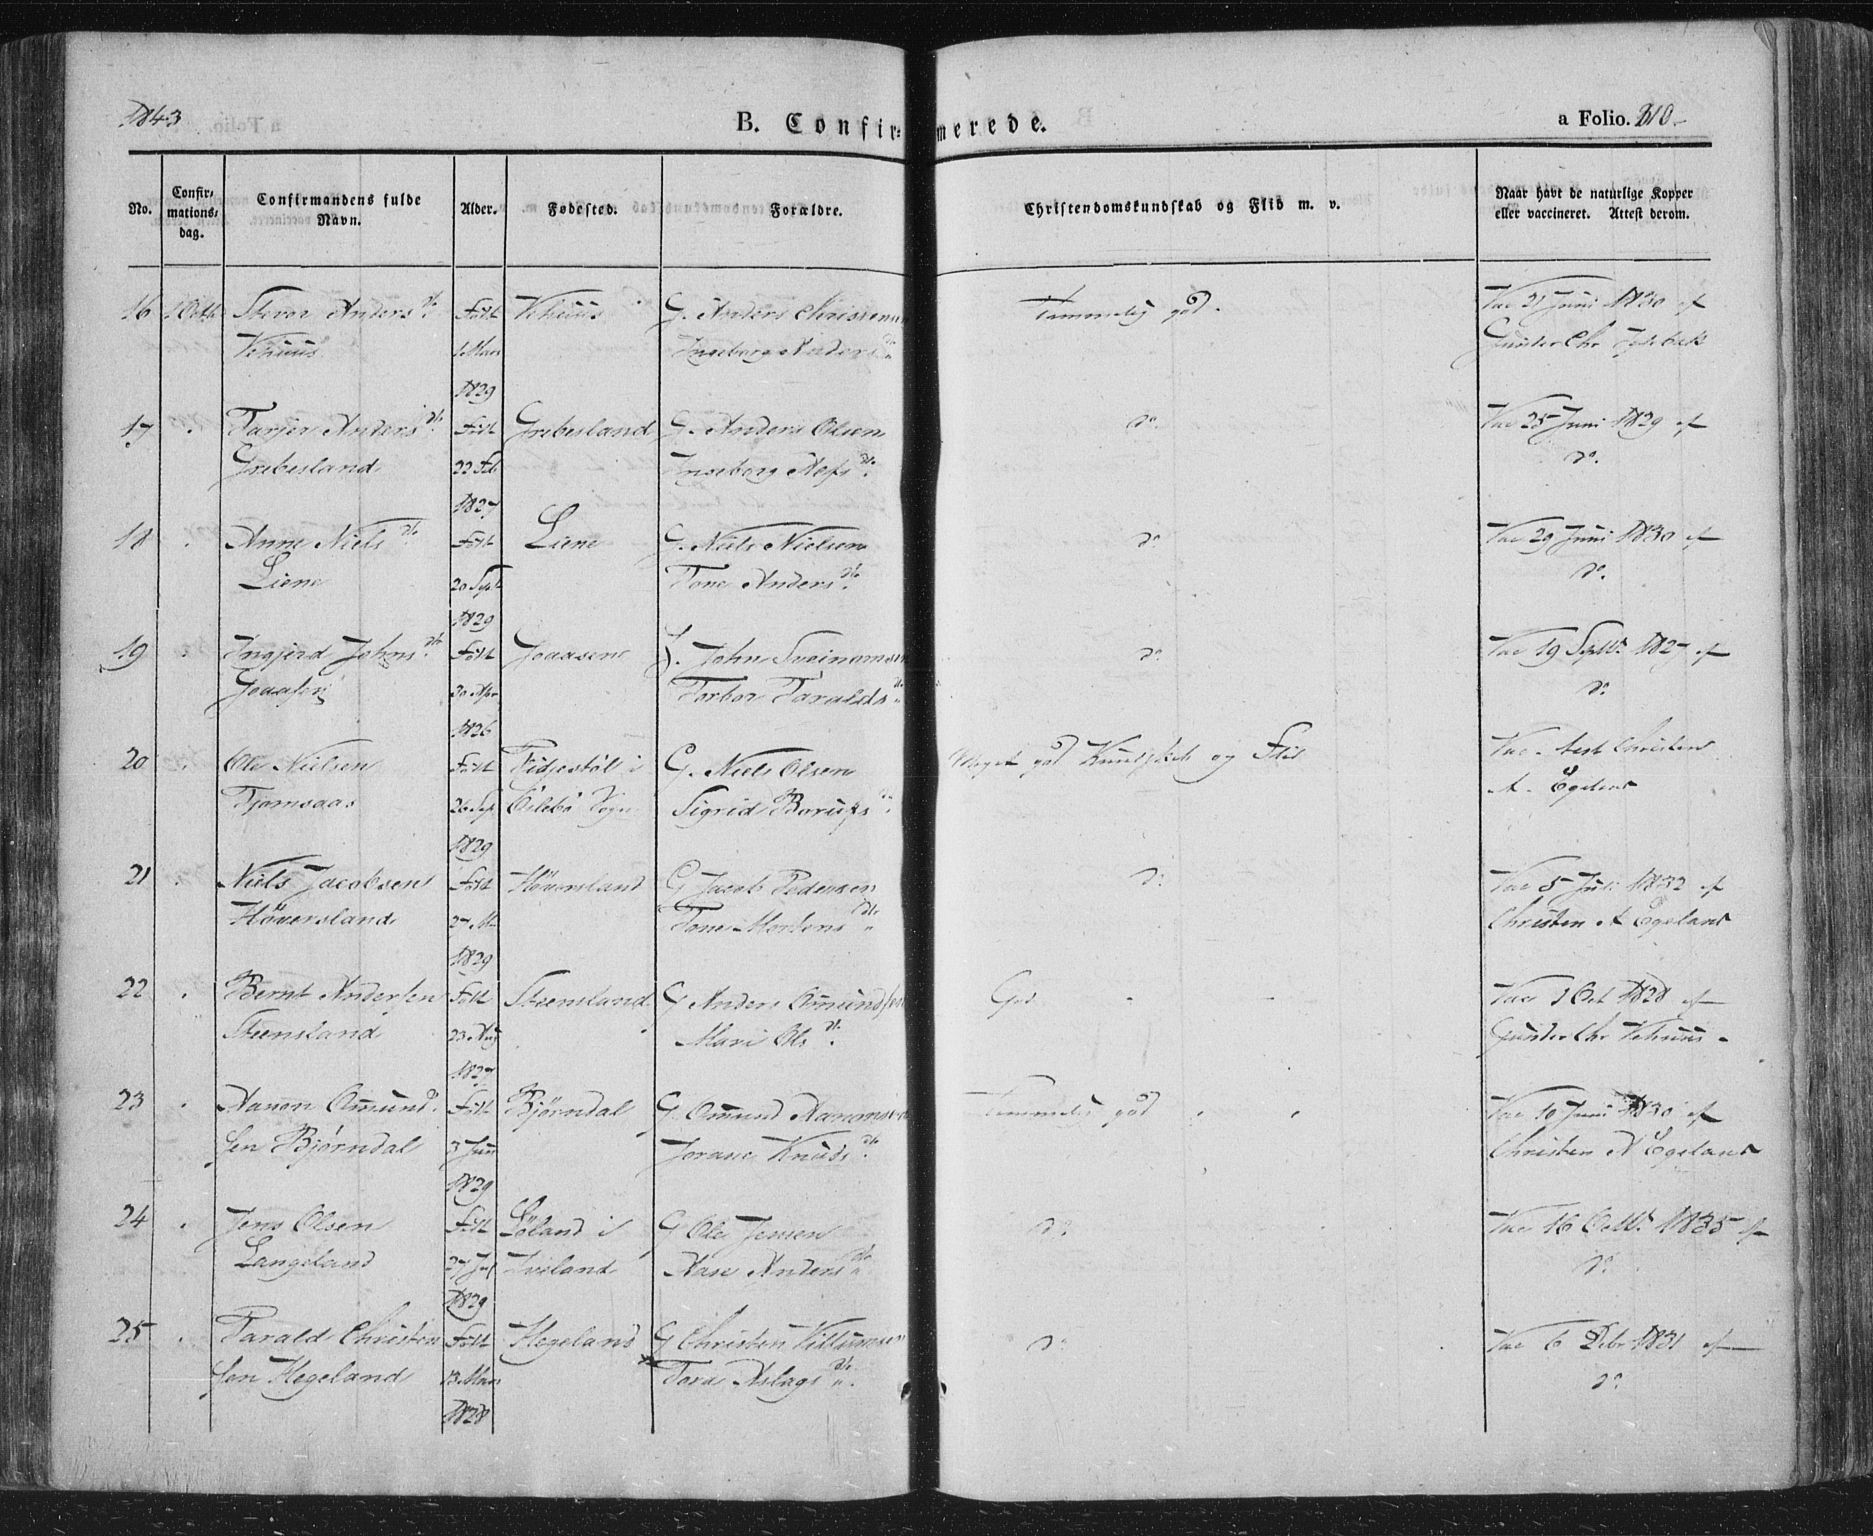 1843
B. Confirmerede.
a Folio. 210
No.
Confirmationsdag.
Confirmandens fulde Navn.
Alder.
Fødested.
Forældre.
Christendomskundskab og Flid m. v.
Naar havt de naturlige Kopper eller vaccineret. Attest derom.
16 1 Octb Anders d. Født Vehuus G. Anders Christensen Temmelig god. Vac 21 Juni 1830 af
Vehuus 1 Mars Ingeborg Anders d. Gunder Chr
1829
17 Tarjer Anders d. Født Grebesland G. Anders Olsen do. Vac 25 Juni 1829 af
Grebesland 22 Feb Ingeborg d. do.
1827
18 Anne Niels d. Født Liene G. Niels Nielsen do Vac 29 Juni 1830 af
Liene 20 Sept Tone Anders d. do.
1829
19 Ingjerd Johns d. Født Joaasen John Tveinomsen do. Vac 19 Septb. 1827 af
Joaasen Torbor Taralds d. do
1826
20 Ole Nielsen Født Fidjestøl i G. Niels Olsen Meget god Kundskab og Flid Vac Christen
Tjomsaas 26 Sep Øslebø Sogn Sigrid d. A. Egeland
1829
21 Niels Jacobsen Født Høversland G Jacob Pedersen do Vac 5 Juli 1832 af
Høversland 27 Tone Mortens d. Christen A Egeland
1829
22 Bernt Andersen Født Steensland G Anders Omundsen God Vac 1 Oct 1828 af
Steensland 23 Aug Mari Ols d. Gunder Chr Vehuus
1827
23 Aanon Omund- Født Bjørndal G. Omund Aanonsen Temmelig god Vac 10 Juni 1830 af
sen Bjørndal 3 Jun Jorane Knuds d. Christen A Egeland
1829
24 Jens Olsen Født i G Ole Jensen do. Vac 16 Octb. 1835 af
Langeland 27 Jul Iveland Aase Anders d. do
1829
25 Tarald Christen Født Hegeland G Christen Villumsen do Vac 6 Debr 1831 af
sen Hegeland 13 Mars Tora Aslags d. do.
1828